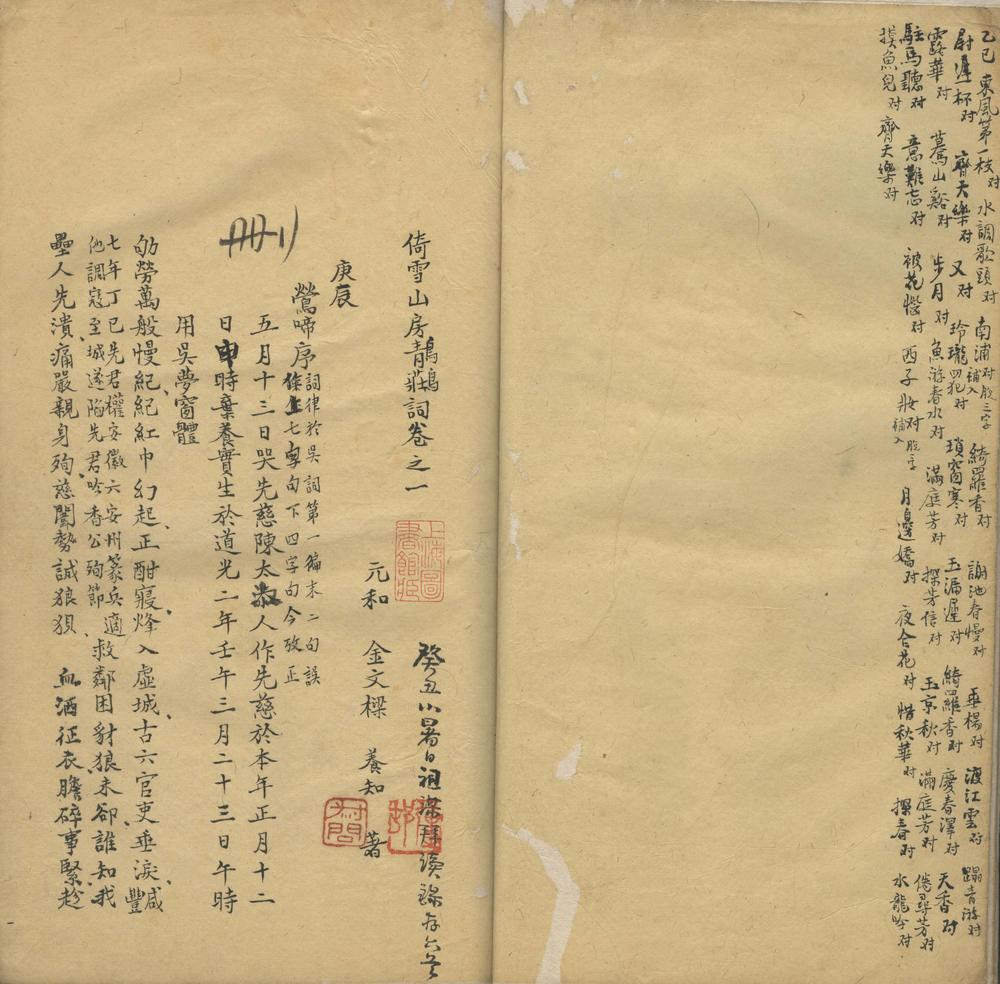 乙巳 東風第一枝对 水調歌頭对 南浦对脫三字補入 綺羅香对 謝池春慢对 垂楊对 渡江雲对 踢青游对
尉遲杯对 齊天樂对 又对 玲瓏四犯对 瑣窗寒对 玉漏遲对 綺羅香对 慶春澤对 天香对
露華对 驀山谿对 步月对 魚游春水对 滿庭芳对 探芳信对 玉京秋对 滿庭芳对 倦尋芳对
駐馬聽对 意難忘对 被花惱对 西子妝对脫字補入 月邊嬌对 夜合花对 惜秋華对 探春对 水龍吟对
摸魚兒对 齊天樂对
倚雪山房青鶼鶼莊詞卷之一
上海圖書館藏
癸丑小暑日祖 拜讀錄存六 
元和 金文樑 養知 著
庚辰
刪
鶯啼序 詞律於吳詞第一徧末二句誤
作上七字句下四字句今攷正
五月十三日哭先慈陳太淑人作先慈於本年正月十二
日申時棄養實生於道光二年壬午三月二十三日午時
用吳夢窗體
劬勞萬般慢紀紀紅巾幻起正酣寢烽入虛城古六官吏垂淚咸豐
七年丁巳先君權安徽六安州篆兵適
他調寇至城遂陷先君吟香公殉節 救鄰困豺狼未卻誰知我
壘人先潰痛嚴親身殉慈闈勢誠狼狽 血洒征衣膽碎事緊趁